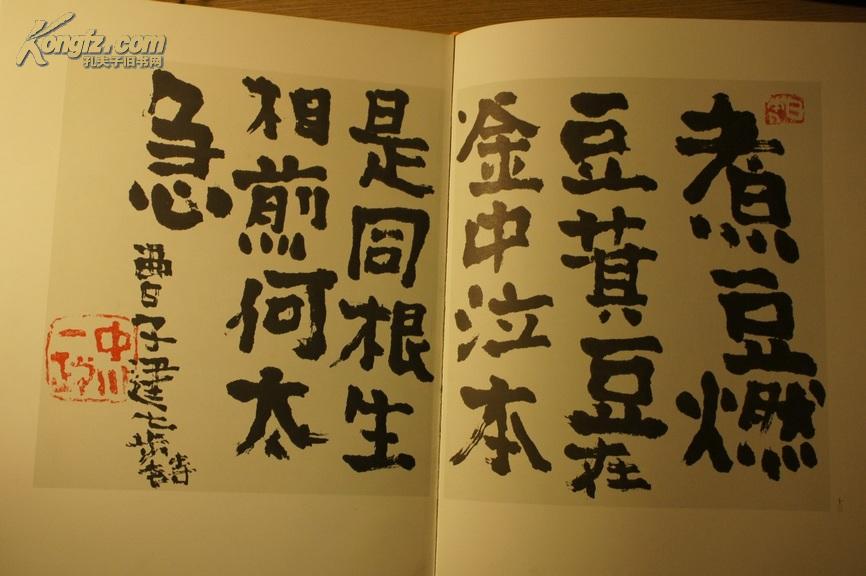 煮豆燃
豆萁豆在
釡中泣本
是同根生
相煎何太
急
曹子建七歩詩
中川一政
Kongfz.com
孔夫子旧书网